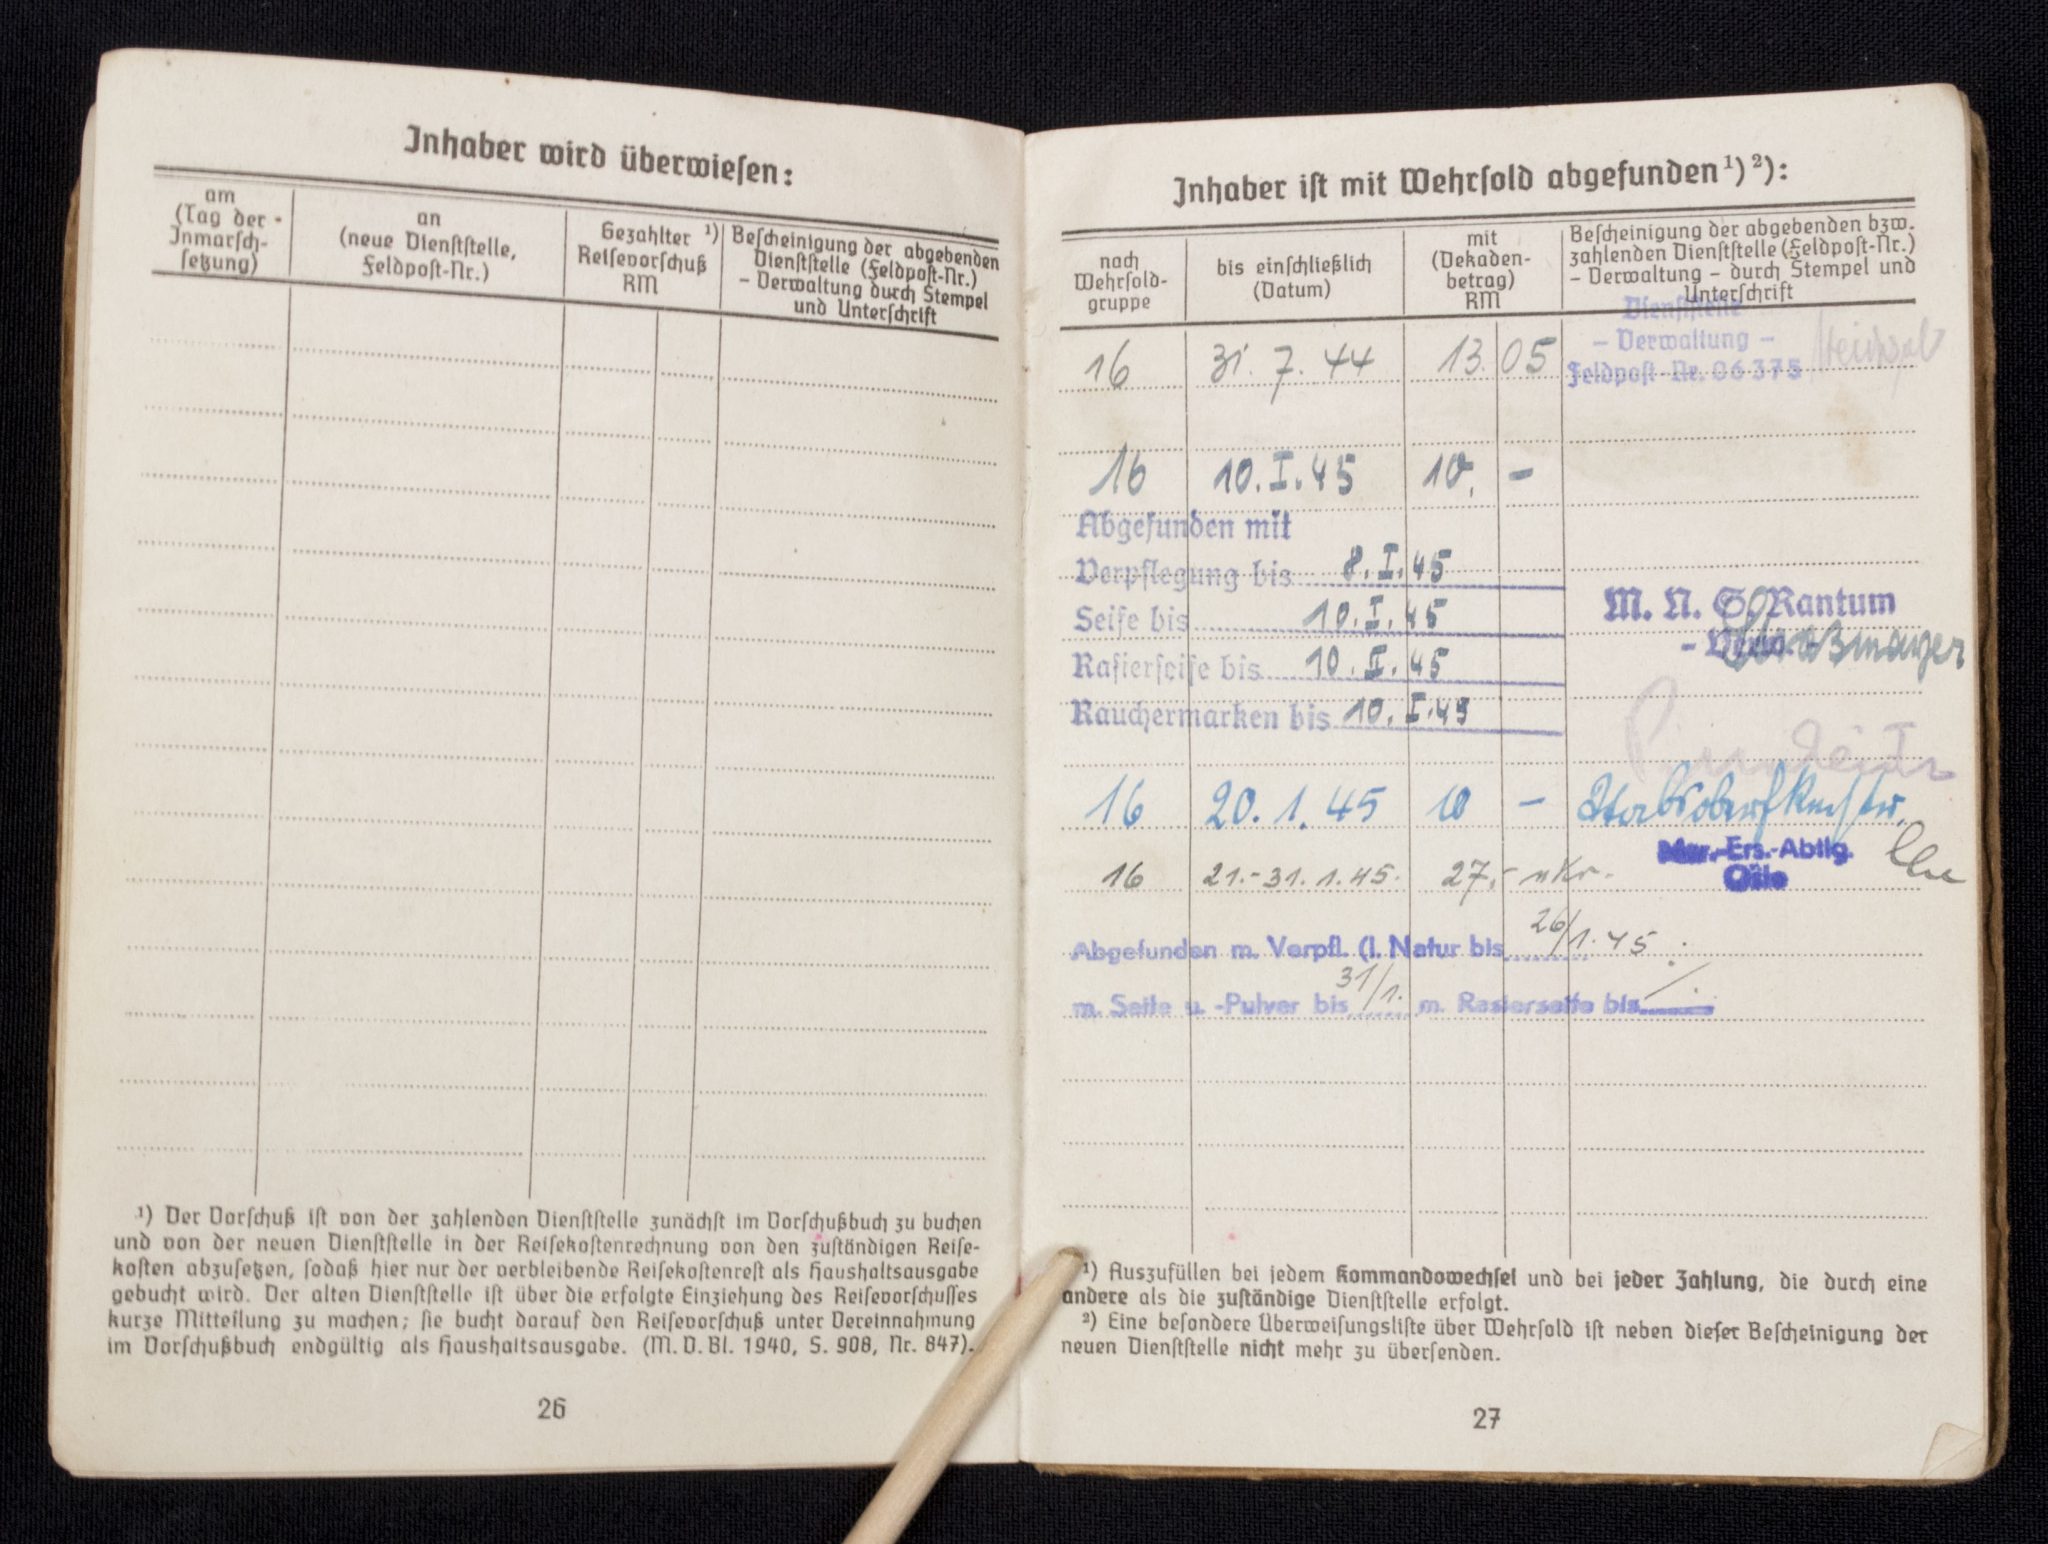 Inhaber wird überwiesen:
am
(Tag der
Inmarsch-
setzung)
an
(neue Dienststelle,
Feldpost-Nr.)
Gezahlter ¹)
Reisevorschuß
RM
Bescheinigung der abgebenden
Dienststelle (Feldpost-Nr.)
– Verwaltung durch Stempel
und Unterschrift
¹) Der Vorschuß ist von der zahlenden Dienststelle zunächst im Vorschußbuch zu buchen
und von der neuen Dienststelle in der Reisekostenrechnung von den zuständigen Reise-
kosten abzusetzen, sodaß hier nur der verbleibende Reisekostenrest als Haushaltsausgabe
gebucht wird. Der alten Dienststelle ist über die erfolgte Einziehung des Reisevorschusses
kurze Mitteilung zu machen; sie bucht darauf den Reisevorschuß unter Vereinnahmung
im Vorschußbuch endgültig als Haushaltsausgabe. (M. V. Bl. 1940, S. 908, Nr. 847).
26
Inhaber ist mit Wehrsold abgefunden¹)²):
nach
Wehrsold-
gruppe
bis einschließlich
(Datum)
mit
(Dekaden-
betrag)
RM
Bescheinigung der abgebenden bzw.
zahlenden Dienststelle (Feldpost-Nr.)
– Verwaltung – durch Stempel und
Unterschrift
Dienststelle
– Verwaltung –
Feldpost-Nr. 06375
16 31. 7. 44 13. 05
16 10. I. 45 10. –
Abgefunden mit
Verpflegung bis 8. I. 45
Seife bis 10. I. 45
Rasierseife bis 10. II. 45
Rauchermarken bis 10. I. 45
M. N. S. Rantum
16 20. 1. 45 10 –
16 21.-31. 1. 45. 27,- nKr.
Mar.-Ers.-Abtlg.
Oslo
Abgefunden m. Verpfl. (i. Natur bis 26/1. 45
m. Seife u. -Pulver bis 31/1. m. Rasierseife bis /.
¹) Auszufüllen bei jedem Kommandowechsel und bei jeder Zahlung, die durch eine
andere als die zuständige Dienststelle erfolgt.
²) Eine besondere Überweisungsliste über Wehrsold ist neben dieser Bescheinigung der
neuen Dienststelle nicht mehr zu übersenden.
27